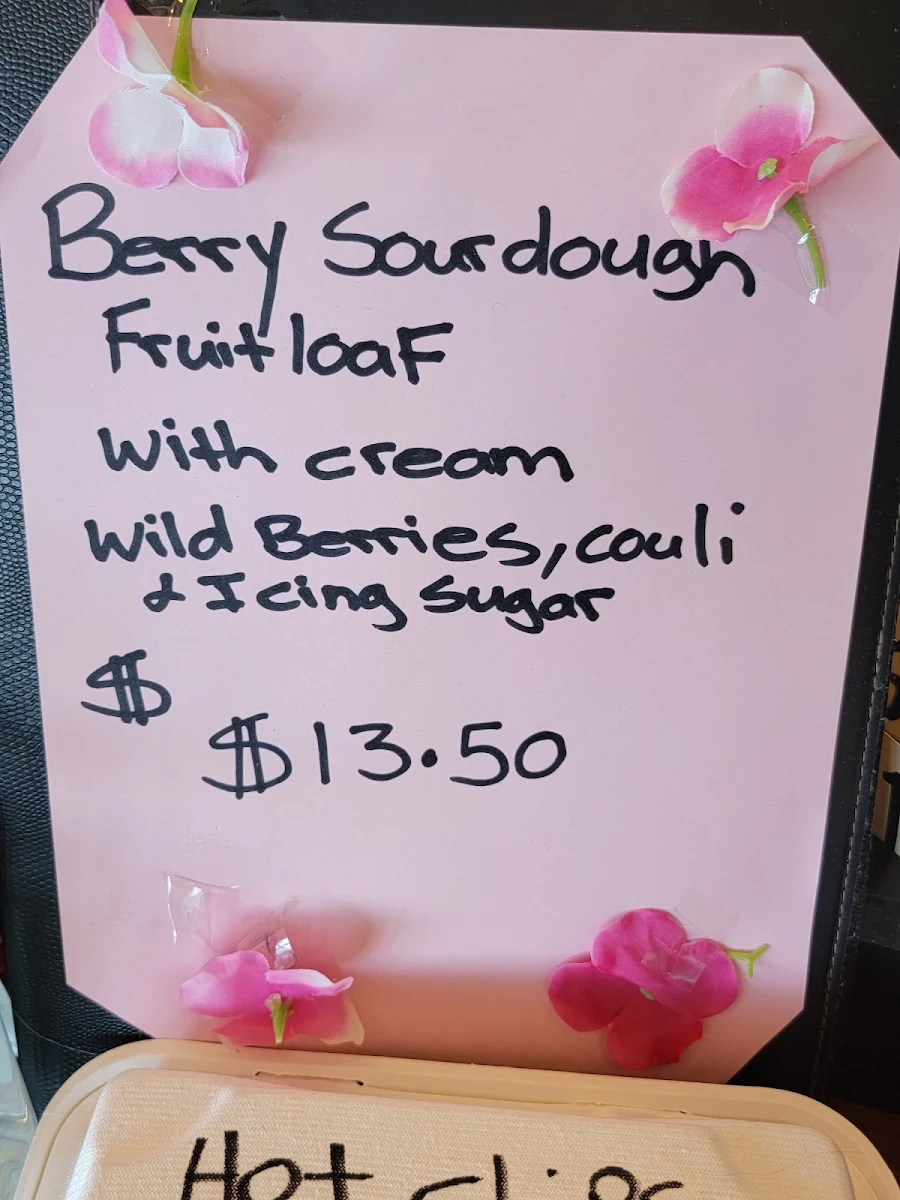 Berry Sourdough
Fruit loaf
with cream
Wild Berries, couli
& Icing Sugar
$
$13.50
Hot